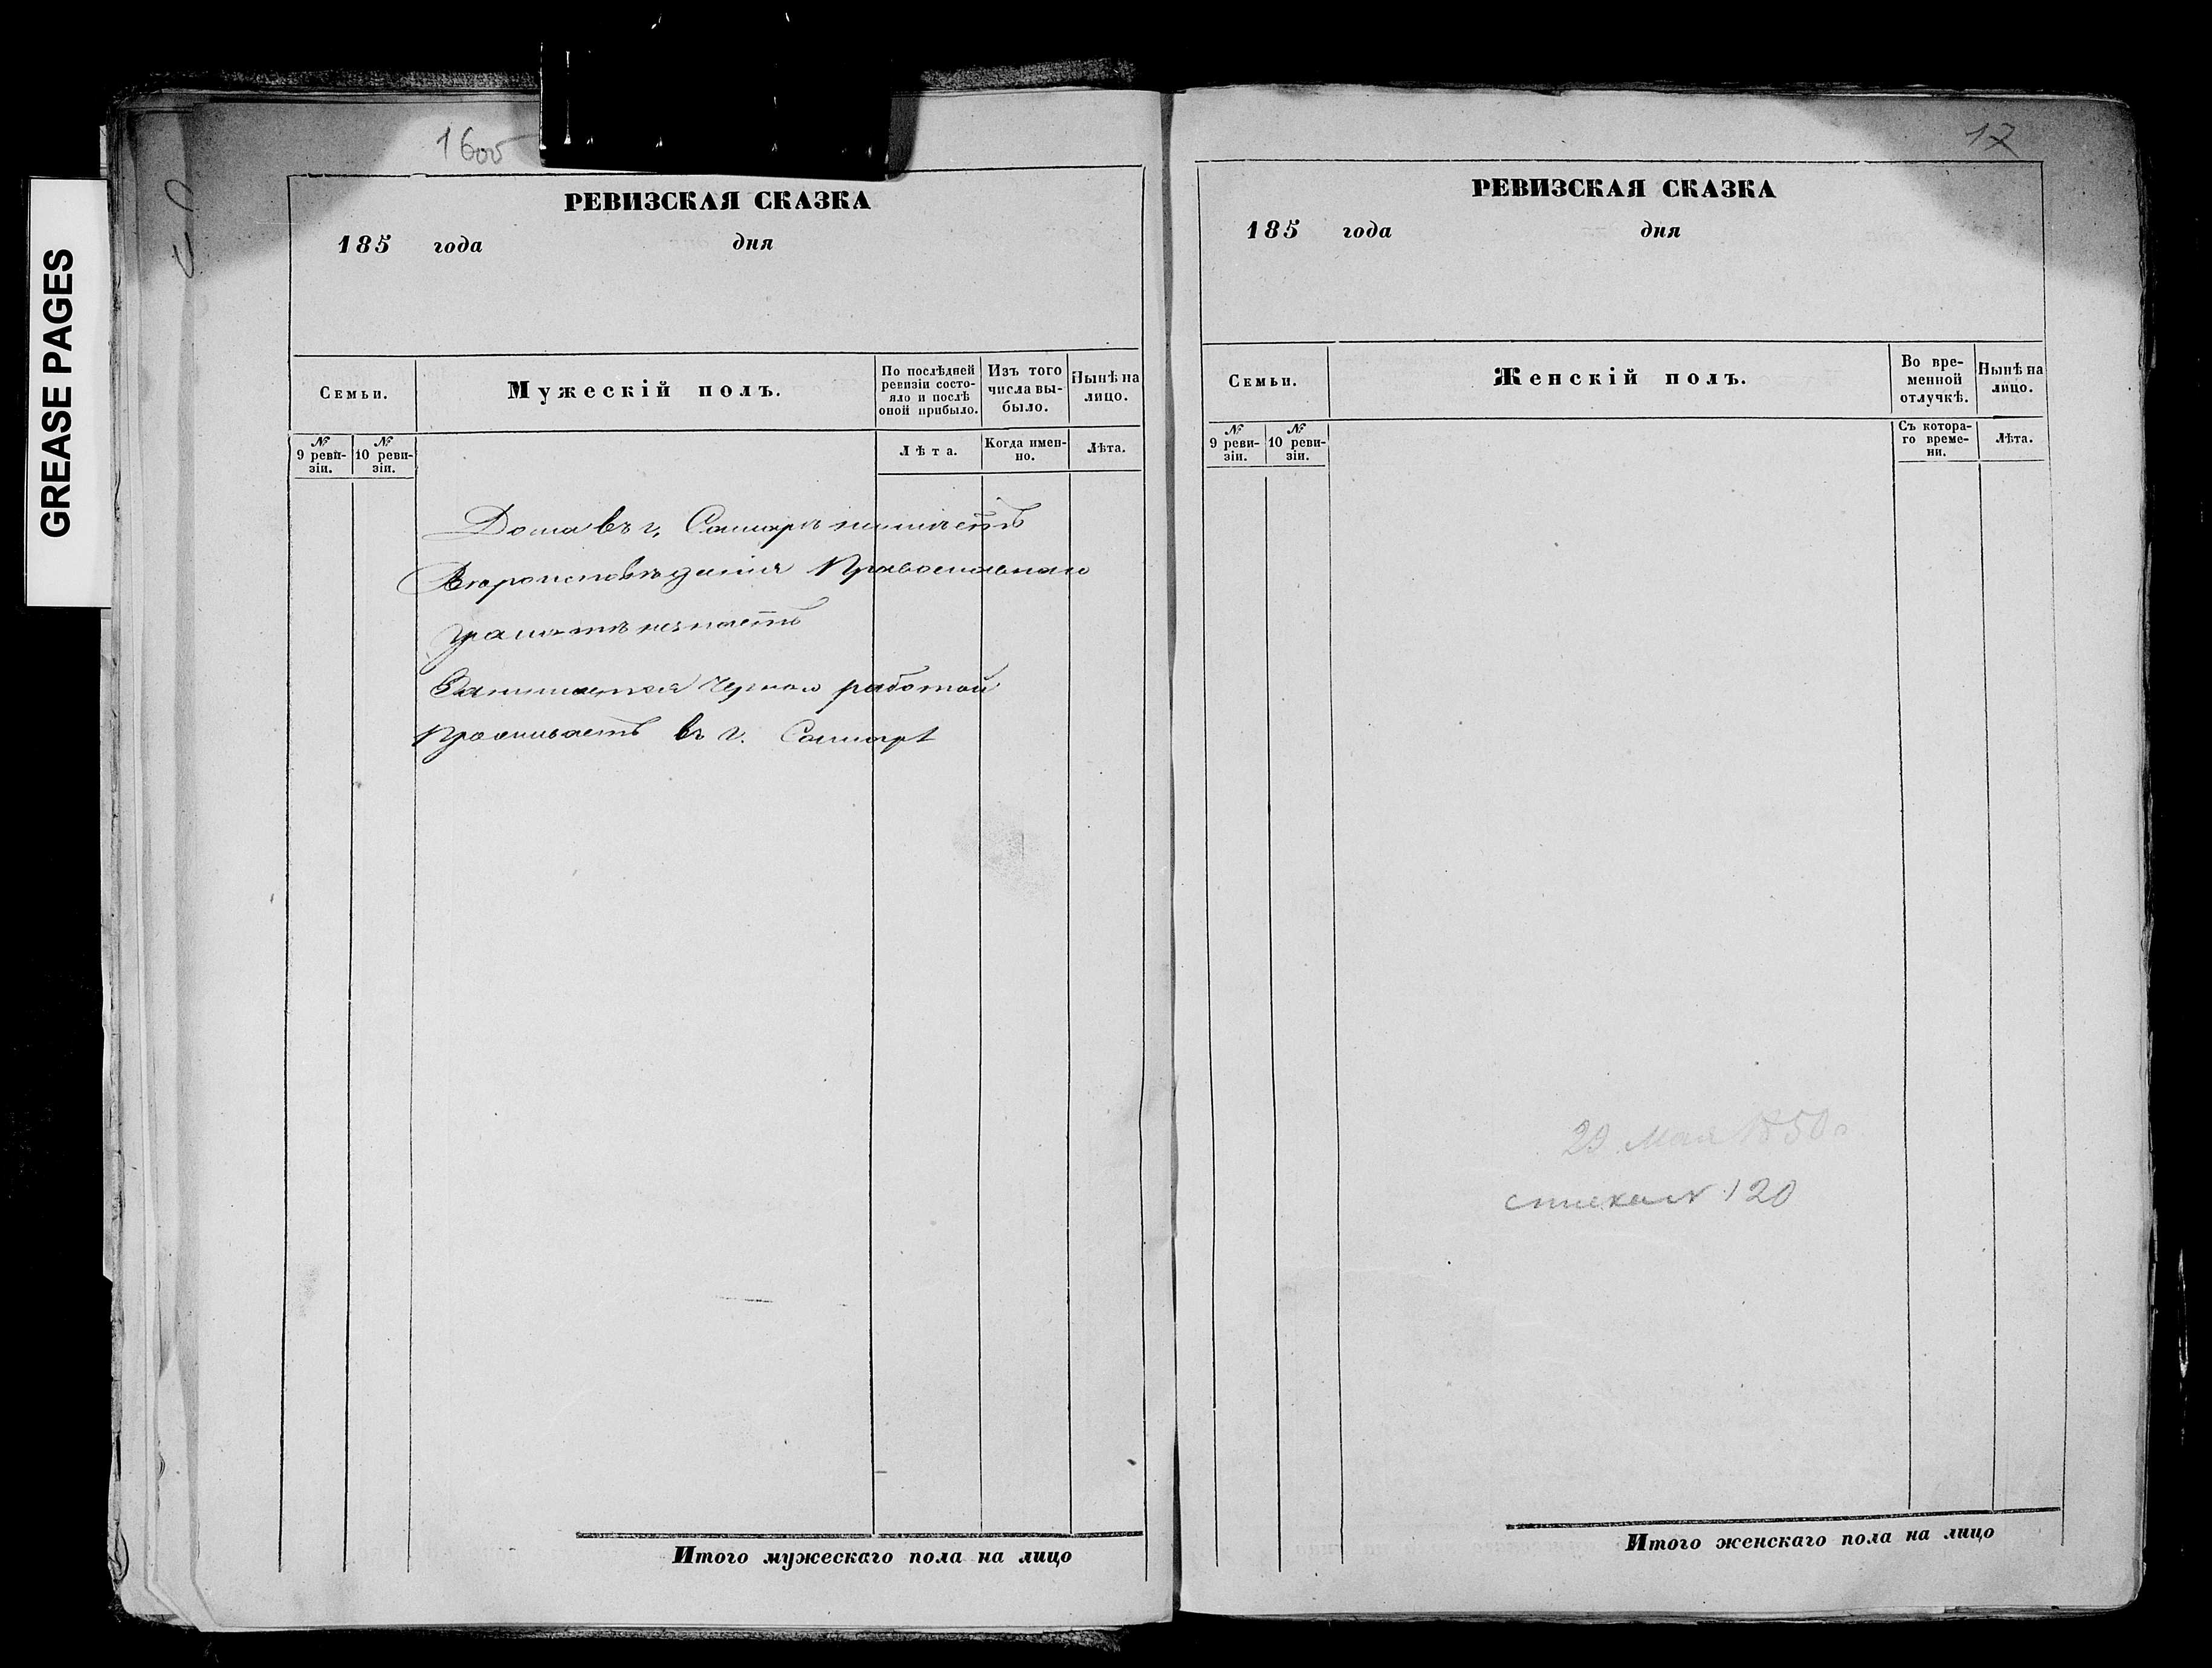 GREASE PAGES
16об
РЕВИЗСКАЯ СКАЗКА
185 года дня
Семьи.
Мужескій полъ.
По послѣдней ревизіи состояло и послѣ оной прибыло.
Изъ того числа выбыло.
Нынѣ на лицо.
№ 9 ревизіи.
№ 10 ревизіи.
Лѣта.
Когда именно.
Лѣта.
Дома въ г. Самарѣ неимѣетъ
Вѣроисповѣданія Православнаго
грамотѣ незнаетъ
Занимается черною работой
Проживаетъ въ г. Самарѣ
Итого мужескаго пола на лицо
17
РЕВИЗСКАЯ СКАЗКА
185 года дня
Семьи.
Женскій полъ.
Во временной отлучкѣ.
Нынѣ на лицо.
№ 9 ревизіи.
№ 10 ревизіи.
Съ котораго времени.
Лѣта.
29 Мая 1850 г
120
Итого женскаго пола на лицо